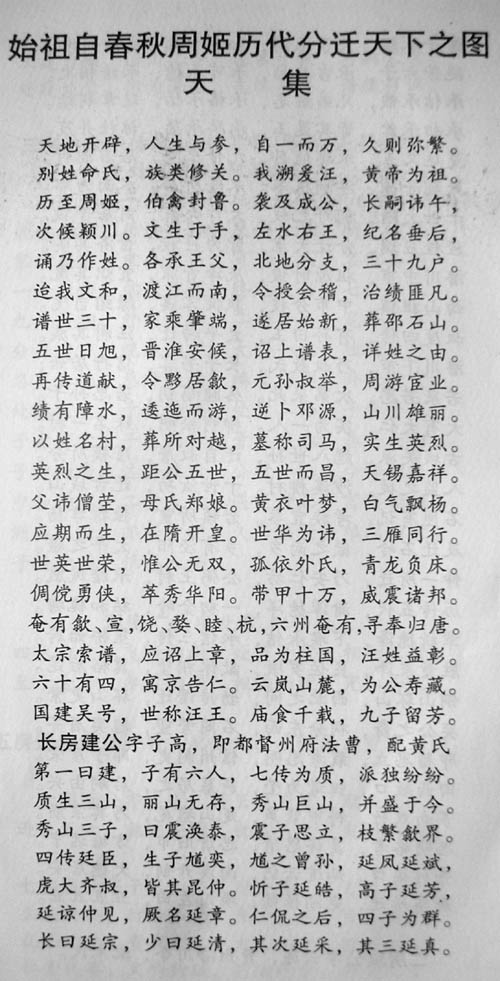 始祖自春秋周姬历代分迁天下之图
天 集
天地开辟，人生与参，自一而万，久则弥繁。
别姓命氏，族类修关。我溯爰汪，黄帝为祖。
历至周姬，伯禽封鲁。袭及成公，长嗣讳午，
次候颖川。文生于手，左水右王，纪名垂后，
诵乃作姓。各承王父，北地分支，三十九户。
迨我文和，渡江而南，令授会稽，治绩匪凡。
谱世三十，家乘肇端，遂居始新，葬邵石山。
五世日旭，晋淮安候，诏上谱表，详姓之由。
再传道献，令黟居歙，元孙叔举，周游宦业。
绩有障水，逶迤而游，逆卜邓源，山川雄丽。
以姓名村，葬所对越，墓称司马，实生英烈。
英烈之生，距公五世，五世而昌，天锡嘉祥。
父讳僧莹，母氏郑娘。黄衣叶梦，白气飘杨。
应期而生，在隋开皇。世华为讳，三雁同行。
世英世荣，惟公无双，孤依外氏，青龙负床。
倜傥勇侠，萃秀华阳。带甲十万，威震诸邦。
奄有歙、宣，饶、婺、睦、杭，六州奄有，寻奉归唐。
太宗索谱，应诏上章，品为柱国，汪姓益彰。
六十有四，寓京告仁。云岚山麓，为公寿藏。
国建吴号，世称汪王。庙食千载，九子留芳。
长房建公字子高，即都督州府法曹，配黄氏
第一曰建，子有六人，七传为质，派独纷纷。
质生三山，丽山无存，秀山巨山，并盛于今。
秀山三子，曰震涣泰，震子思立，枝繁歙界。
四传廷臣，生子馗奕，馗之曾孙，延凤延斌，
虎大齐叔，皆其昆仲。忻子延皓，高子延芳，
延谅仲见，厥名延章。仁侃之后，四子为群。
长曰延宗，少曰延清，其次延采，其三延真。